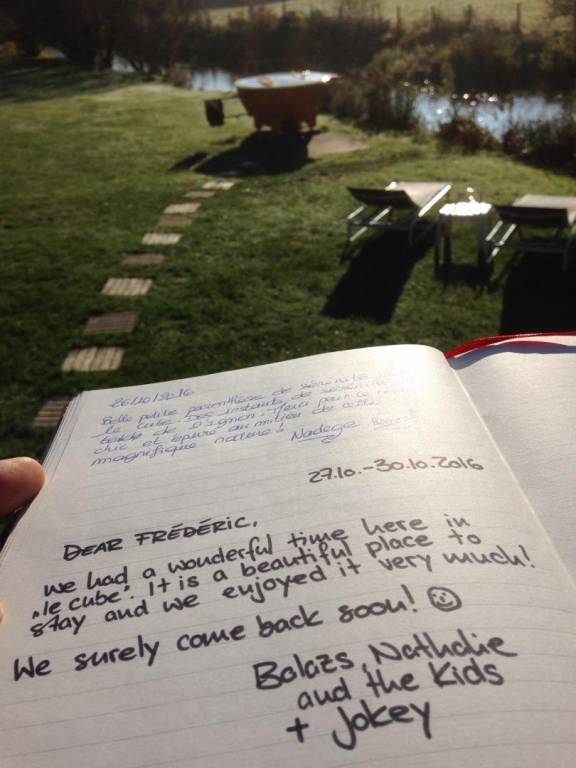 26/10/2016
Belle petite parenthèse de sérénité
le cube. Des instants de sérénité
bords de l'ognon. Merci pour ce
chic et épuré au milieu de cette
magnifique nature!
Nadege
27.10.-30.10.2016
DEAR FRÉDÉRIC,
we had a wonderful time here in
„le cube". It is a beautiful place to
stay and we enjoyed it very much!
We surely come back soon! ☺
Balazs, Nathalie
and the Kids
+ Jokey